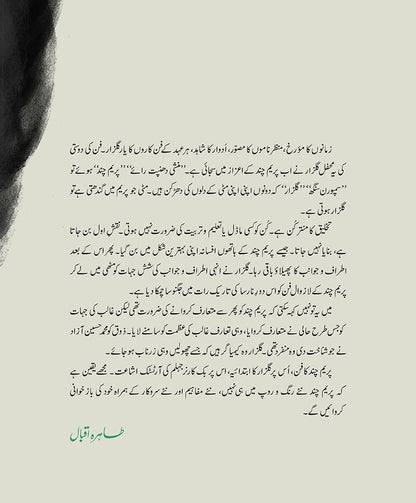 زمانوں کا مؤرخ، منظر ناموں کا مصور، ادوار کا شاہد، ہر عہد کے فن کاروں کا یار گلزار۔ فن کی دوستی
کی یہ محفل گلزار نے اب پریم چند کے اعزاز میں سجائی ہے۔ ’’منشی دھنپت رائے‘‘ ’’پریم چند‘‘ ہوئے تو
’’سمپورن سنگھ‘‘ ’’گلزار‘‘ کہ دونوں اپنی اپنی مٹی کے دلوں کی دھڑکن ہیں۔ مٹی جو پریم میں گندھتی ہے تو
گلزار ہوتی ہے۔
تخلیق کا منتر کُن ہے۔ کُن کو کسی ماڈل یا تعلیم و تربیت کی ضرورت نہیں ہوتی۔ نقشِ اول بن جاتا
ہے، بنایا نہیں جاتا۔ جیسے پریم چند کے ہاتھوں افسانہ اپنی بہترین شکل میں بن گیا۔ پھر اس کے بعد
اطراف و جوانب کا پھیلاؤ باقی رہا۔ گلزار نے انہی اطراف و جوانب کی شش جہات کو مٹھی میں لے کر
پریم چند کے لازوال فن کو اس دورِ نارسا کی تاریک رات میں جگنو سا چمکا دیا ہے۔
میں یہ تو نہیں کہہ سکتی کہ پریم چند کو پھر سے متعارف کروانے کی ضرورت تھی لیکن غالب کی جہات
کو جس طرح حالی نے متعارف کروایا، وہی تعارف غالب کی عظمت کو سامنے لایا۔ ذوق کو محمد حسین آزاد
نے جو شناخت دی وہ منفرد تھی۔ گلزار وہ کیمیا گر ہیں کہ جسے چھو لیں وہی زرِ ناب ہو جائے۔
پریم چند کا فن، اُس پر گلزار کا ابتدائیہ، اس پر بک کارنر جہلم کی آرٹسٹک اشاعت۔ مجھے یقین ہے
کہ پریم چند نئے رنگ و روپ میں ہی نہیں، نئے مفاہیم اور نئے سروکار کے ہمراہ خود کی باز خوانی
کروائیں گے۔
طاہرہ اقبال